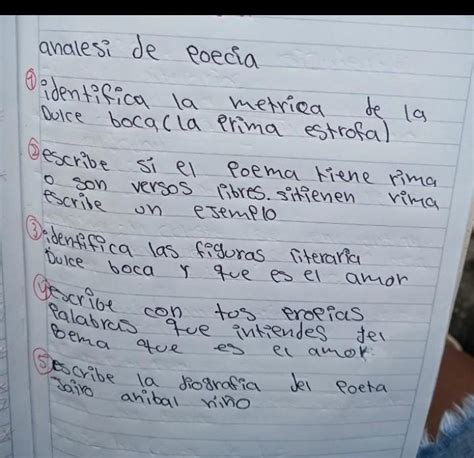 analesi de poecia
① identifica la metrica de la
Dulce boca (la prima estrofa)
② escribe si el poema tiene rima
o son versos libres. sitienen rima
escribe un esemplo
③ identifica las figuras literaria
Dulce boca y que es el amor
④ escribe con tus propias
palabras que intiendes del
poema que es el amor.
⑤ escribe la biografia del poeta
Jairo anibal niño